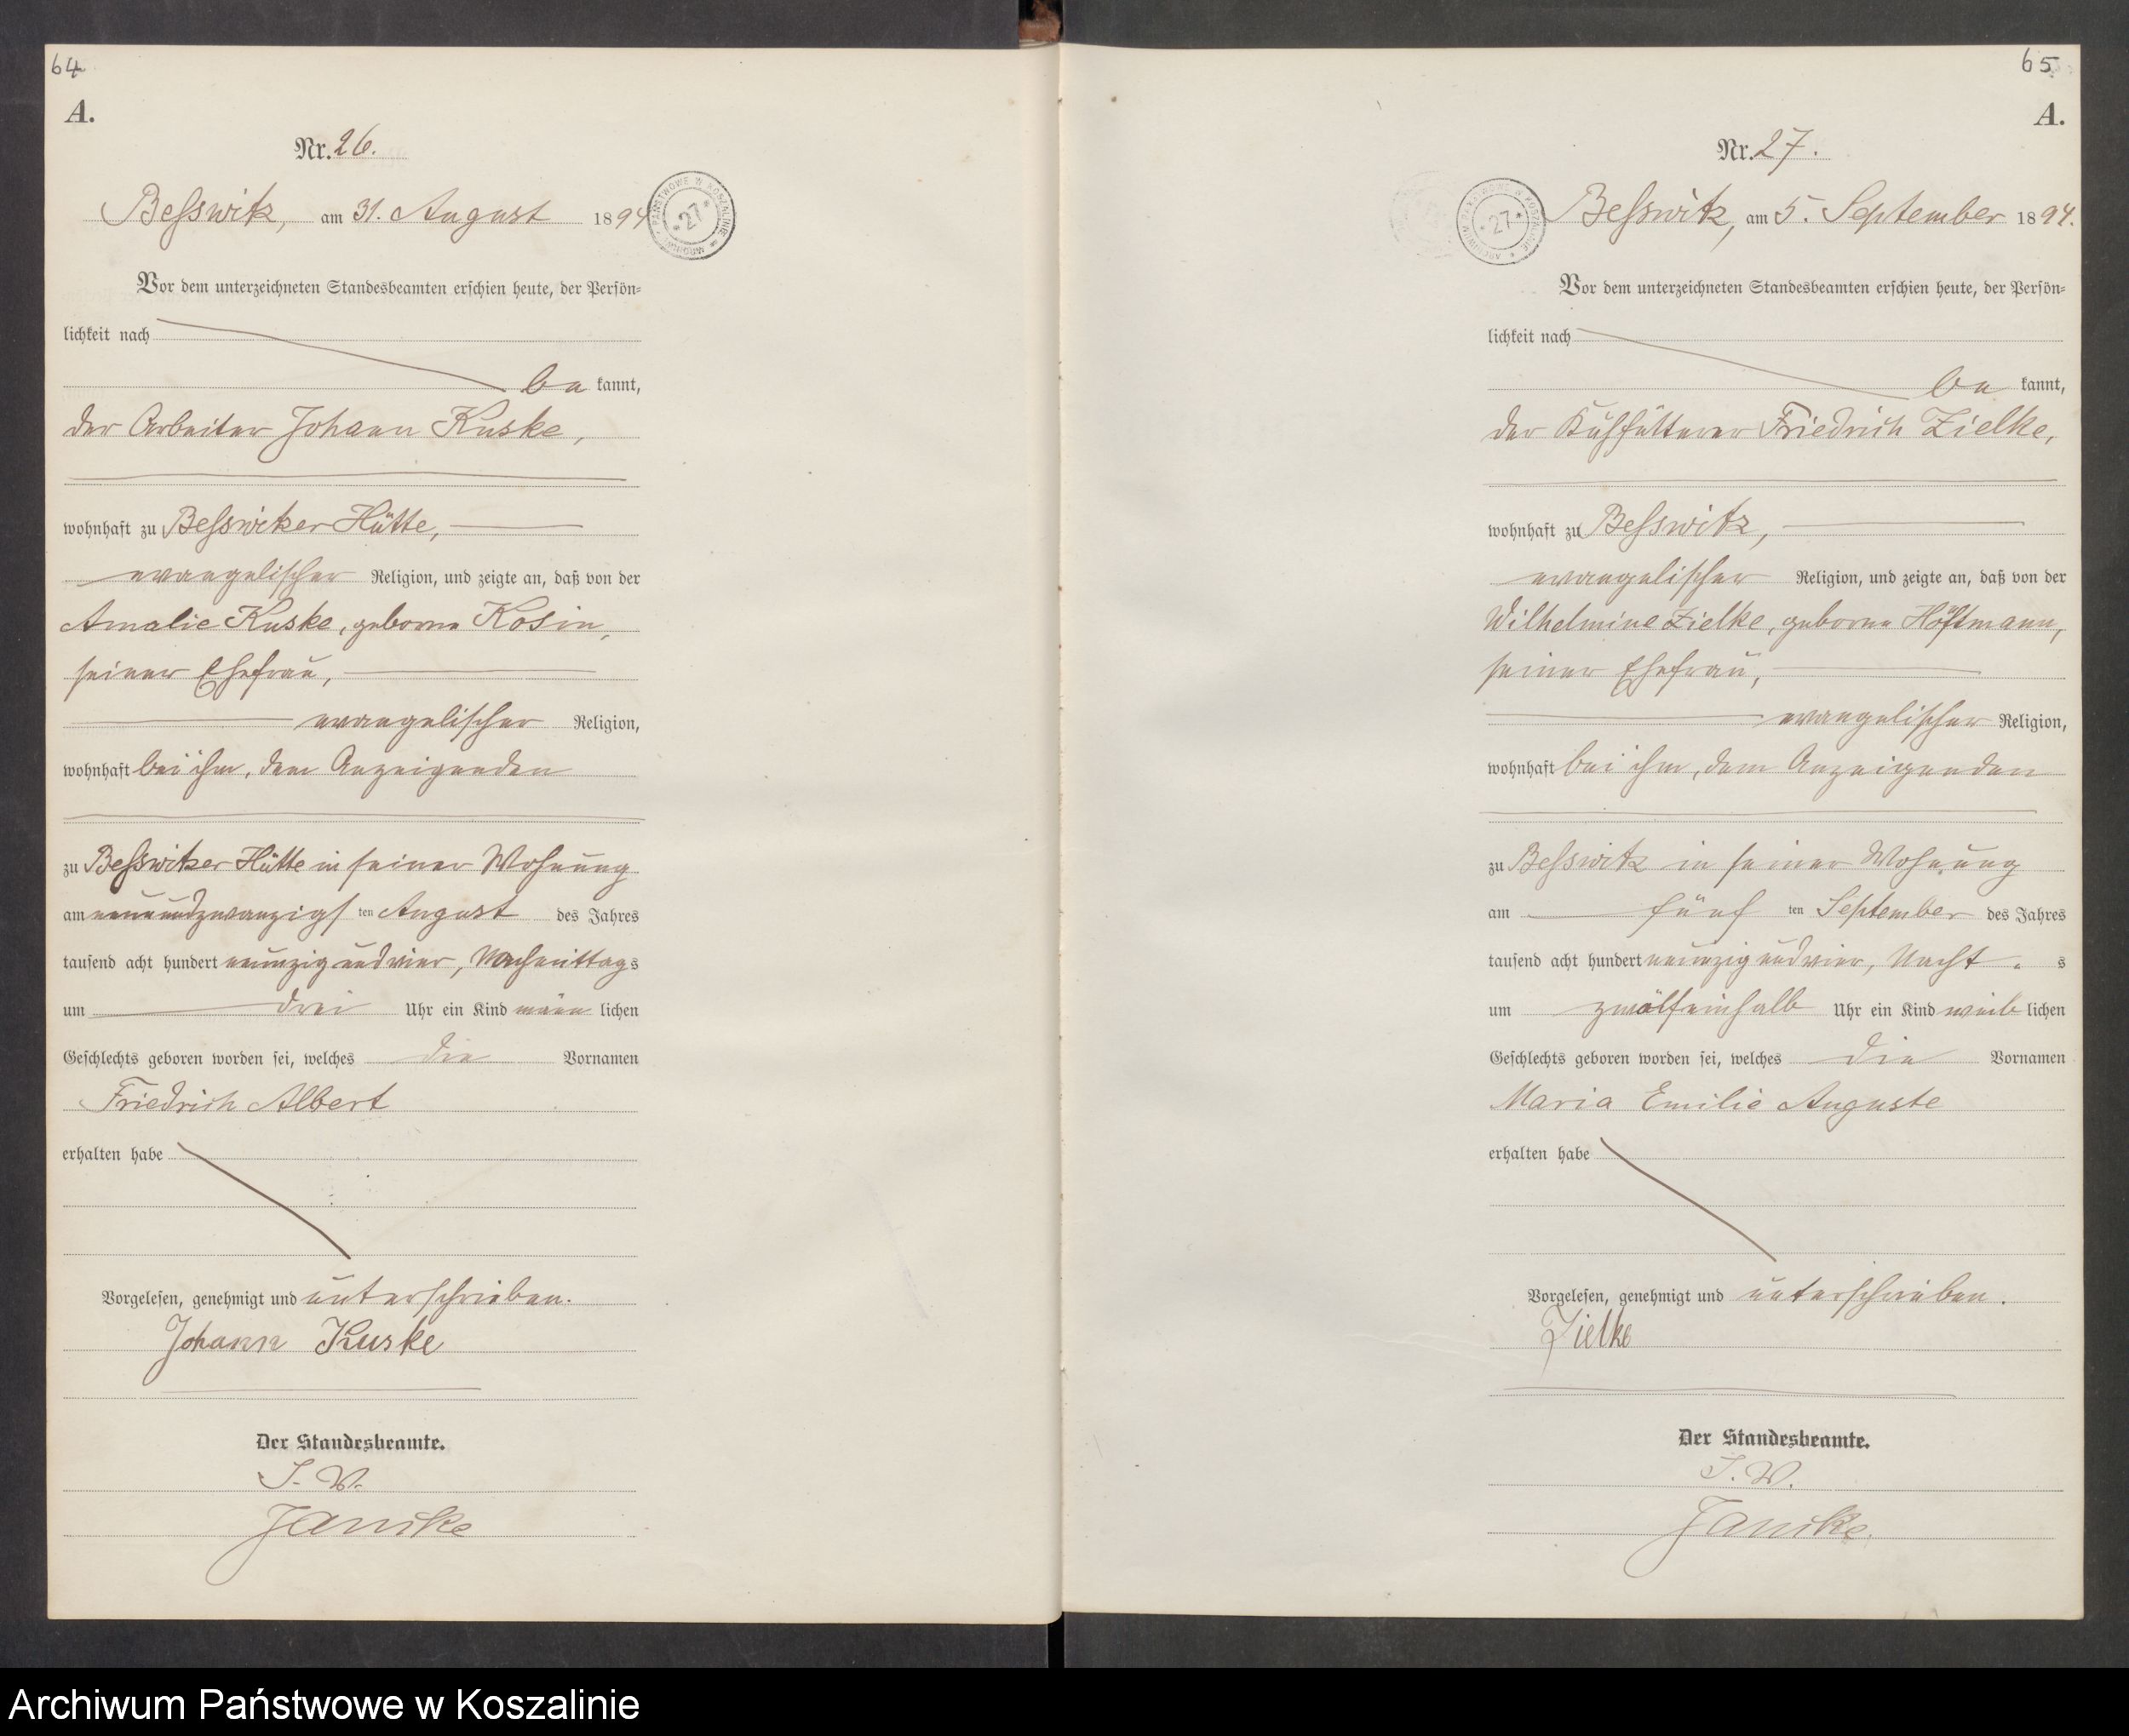 64
A.
Nr. 26.
Beßwitz, am 31. August 1894
ARCHIWUM PAŃSTWOWE W KOSZALINIE * 27 *
Vor dem unterzeichneten Standesbeamten erschien heute, der Persön-
lichkeit nach
be kannt,
der Arbeiter Johann Kuske,
wohnhaft zu Beßwitzer Hütte,
evangelischer Religion, und zeigte an, daß von der
Amalie Kuske, geborne Kosin,
seiner Ehefrau,
evangelischer Religion,
wohnhaft bei ihm, dem Anzeigenden
zu Beßwitzer Hütte in seiner Wohnung
am neunundzwanzigs ten August des Jahres
tausend acht hundert neunzig und vier, Nachmittags
um drei Uhr ein Kind männ lichen
Geschlechts geboren worden sei, welches die Vornamen
Friedrich Albert
erhalten habe
Vorgelesen, genehmigt und unterschrieben.
Johann Kuske
Der Standesbeamte.
J. V.
Janike
65
A.
Nr. 27.
ARCHIWUM PAŃSTWOWE W KOSZALINIE * 27 *
Beßwitz, am 5. September 1894.
Vor dem unterzeichneten Standesbeamten erschien heute, der Persön-
lichkeit nach
be kannt,
der Kuhfütterer Friedrich Zielke,
wohnhaft zu Beßwitz,
evangelischer Religion, und zeigte an, daß von der
Wilhelmine Zielke, geborne Höftmann,
seiner Ehefrau,
evangelischer Religion,
wohnhaft bei ihm, dem Anzeigenden
zu Beßwitz in seiner Wohnung
am fünf ten September des Jahres
tausend acht hundert neunzig und vier, Nacht s
um zwölfeinhalb Uhr ein Kind weib lichen
Geschlechts geboren worden sei, welches die Vornamen
Maria Emilie Auguste
erhalten habe
Vorgelesen, genehmigt und unterschrieben.
Zielke
Der Standesbeamte.
J. V.
Janike.
Archiwum Państwowe w Koszalinie